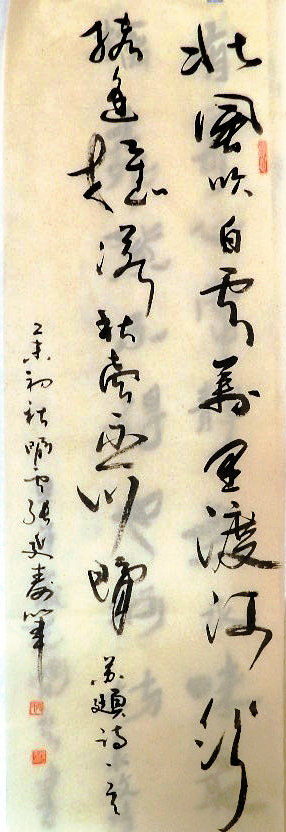 北風吹白雲萬里渡河汾
緒逢搖落秋聲不可聞
蘇頲詩一首
乙未初秋張延壽筆